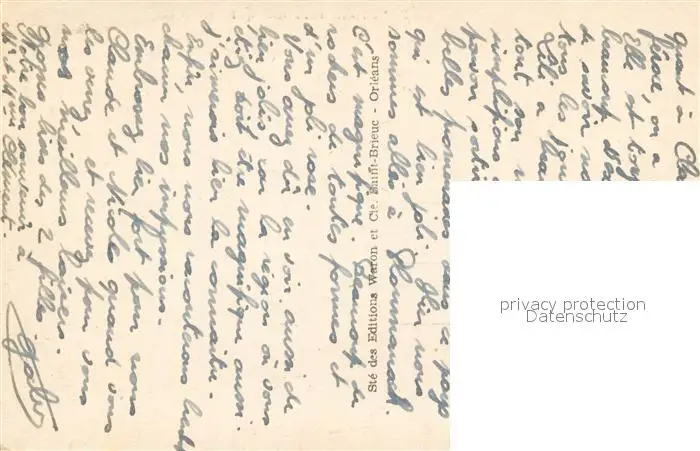 quant à Cla
féroce, on a
Elle est toj
beaucoup d'a
de savoir no
tous les jou
Lili a
tout son
simplifions
pouvoir sortir
belles promenades dans ce pays
qui est bien joli. Hier nous
sommes allés à Ploumanach
C'est magnifique. Beaucoup de
rochers de toutes formes et
d'un joli rose.
Vous avez dû en voir aussi de
bien jolis car la région où vous
étiez doit être magnifique aussi.
J'aimerais bien la connaître.
Enfin, nous nous raconterons
chacun nos impressions.
Embrassez bien fort pour nous
Claude et Nicole quand vous
les verrez et recevez pour vous
nos meilleurs baisers.
Gros bisous des 2 filles.
Notre bon souvenir à
Clément.
Gaby
Sté des Editions Waron et Cie. Saint-Brieuc - Orléans
privacy protection
Datenschutz